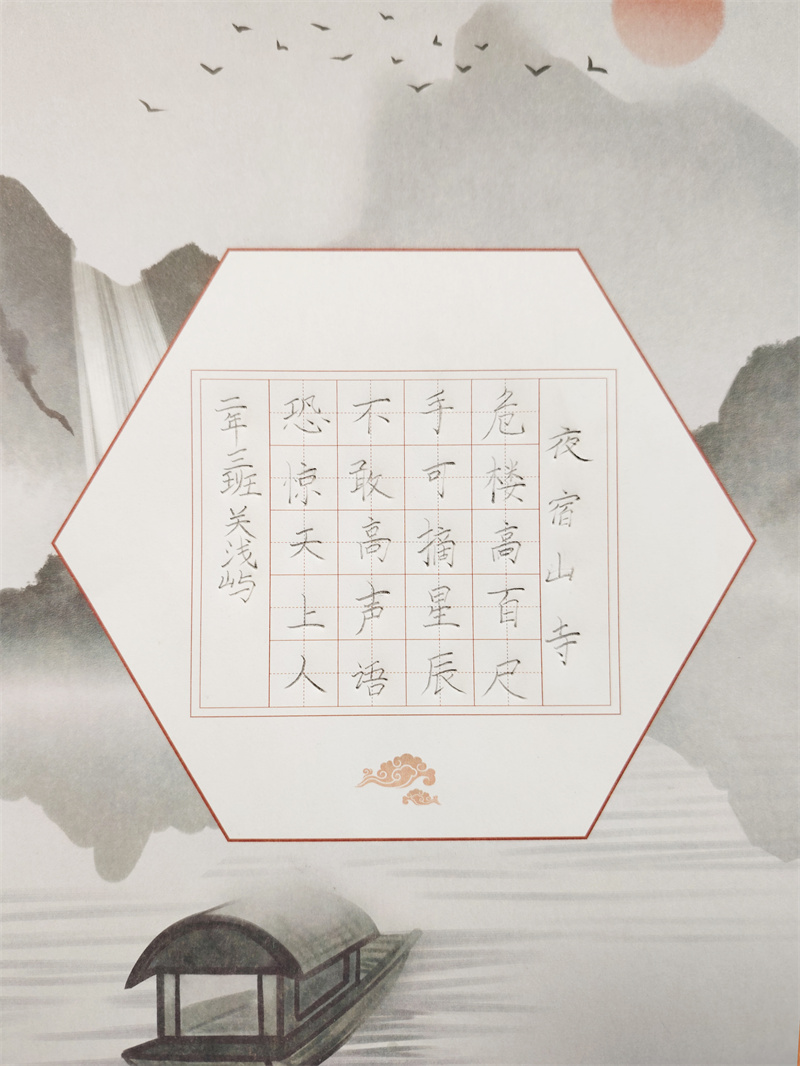 夜宿山寺
危楼高百尺
手可摘星辰
不敢高声语
恐惊天上人
二年三班关浅屿